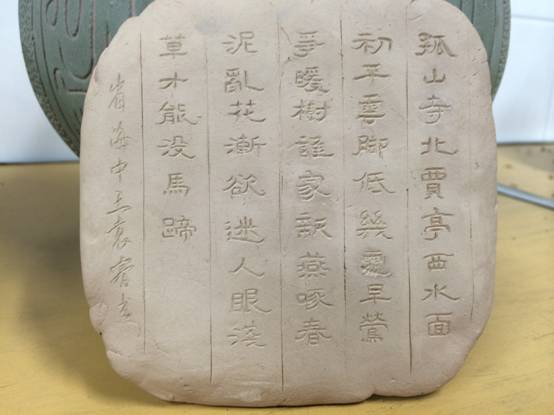 孤山寺北賈亭西水面
初平雲脚低幾處早鶯
爭暖樹誰家新燕啄春
泥亂花漸欲迷人眼淺
草才能没馬蹄
省海中王袁睿